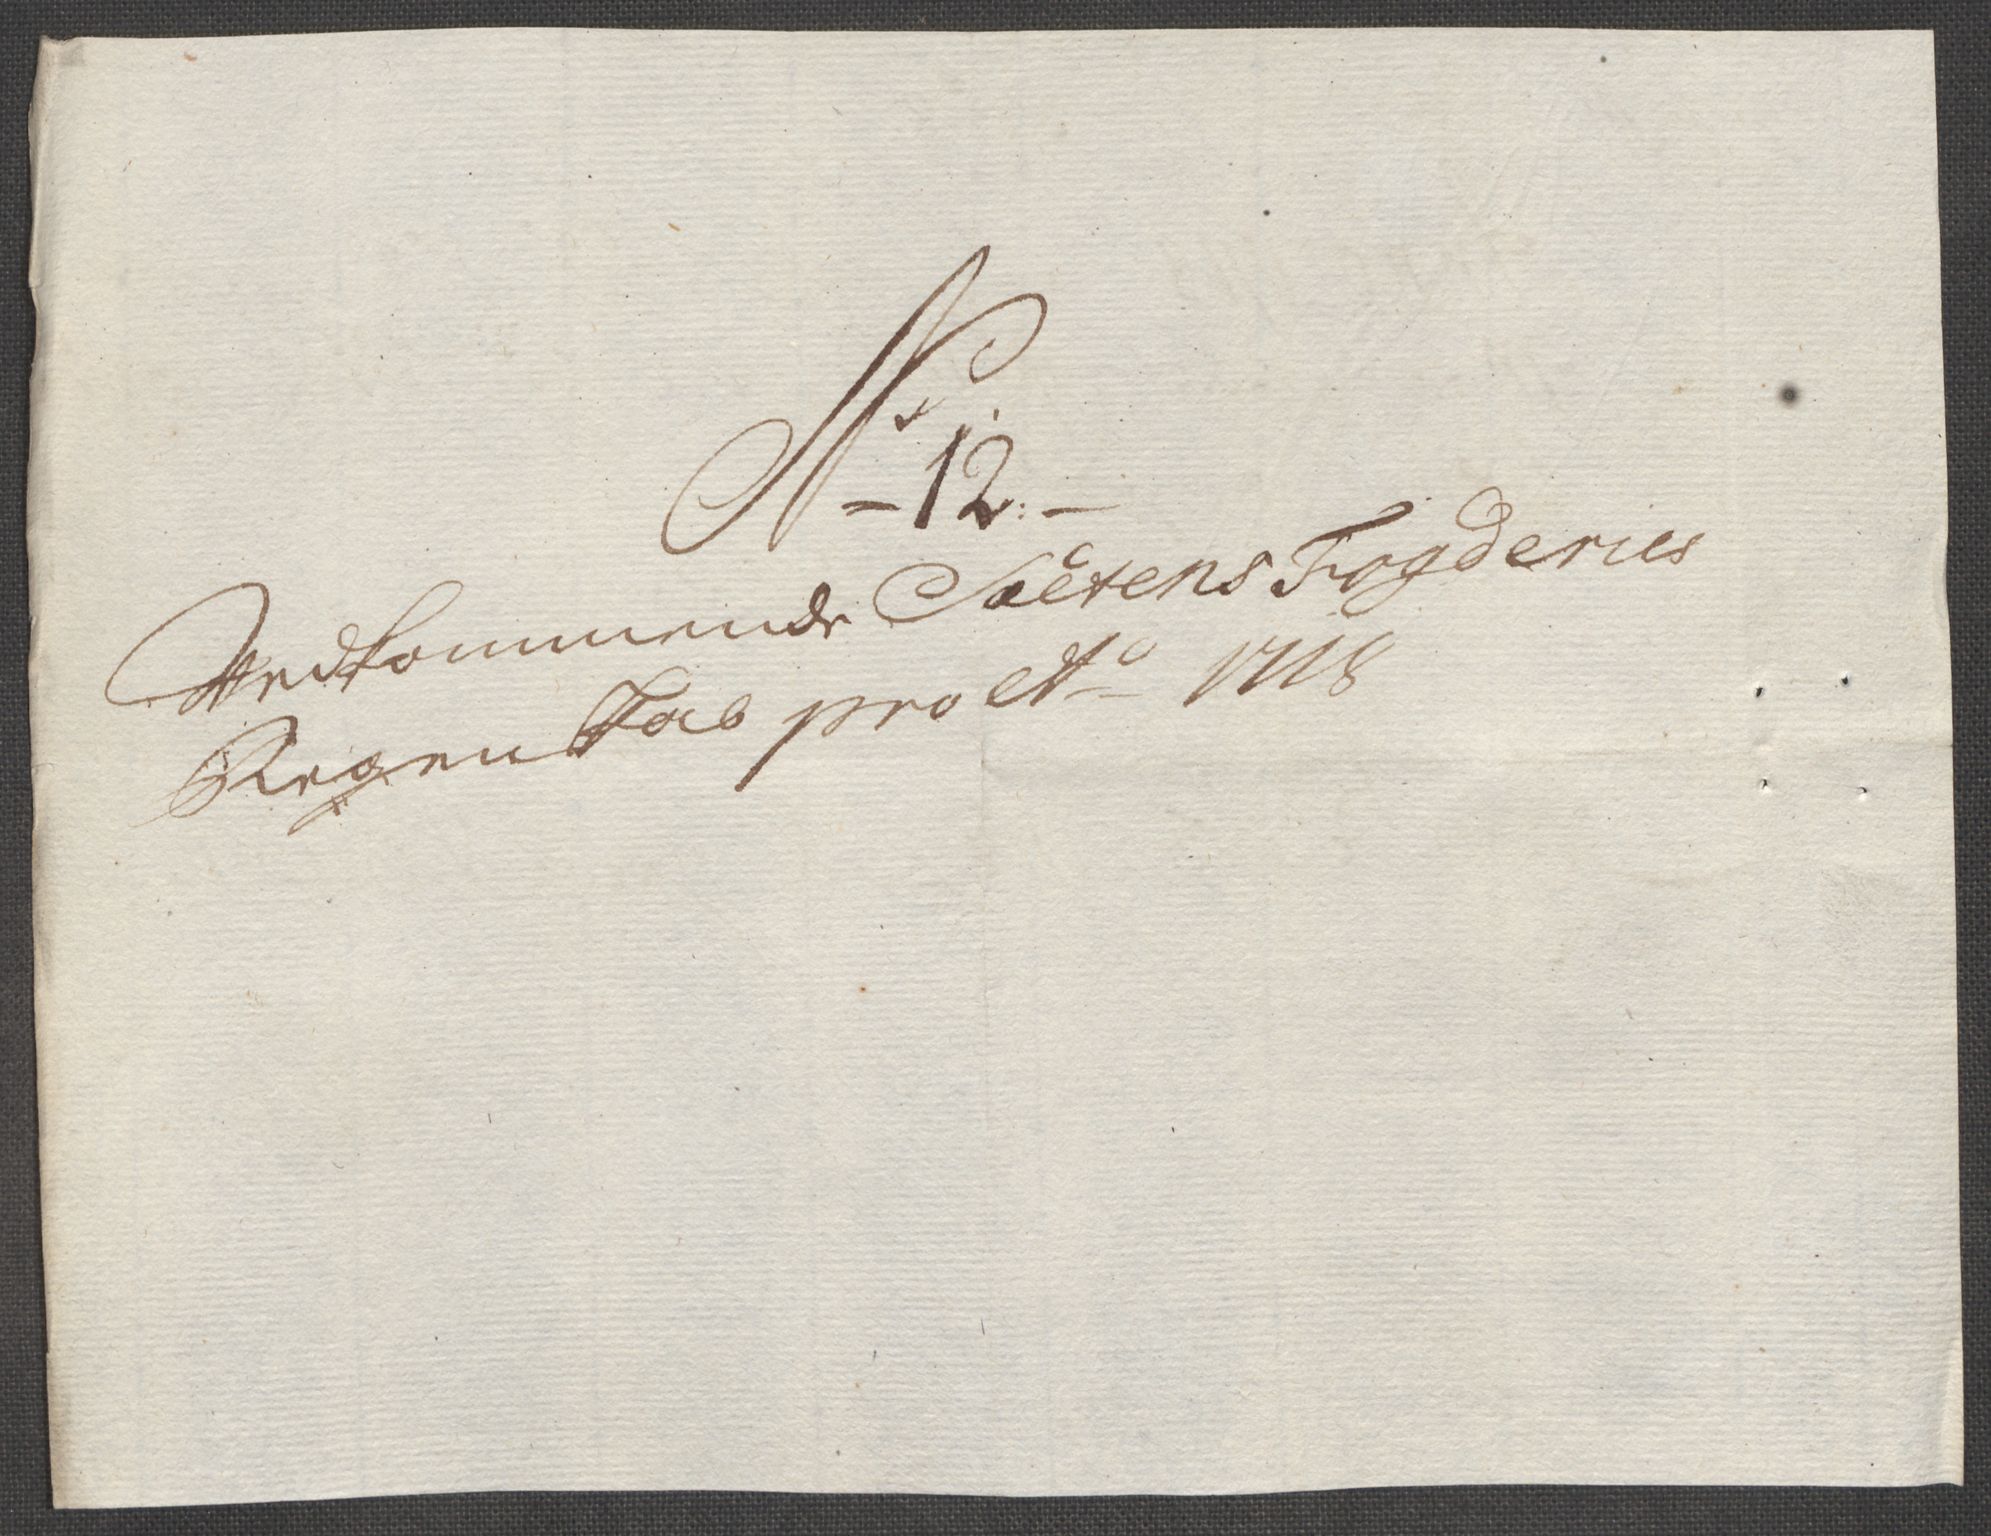 No
- 12. -
Vedkommende Sæltens Fogderies
Regenskab pro Ao 1718